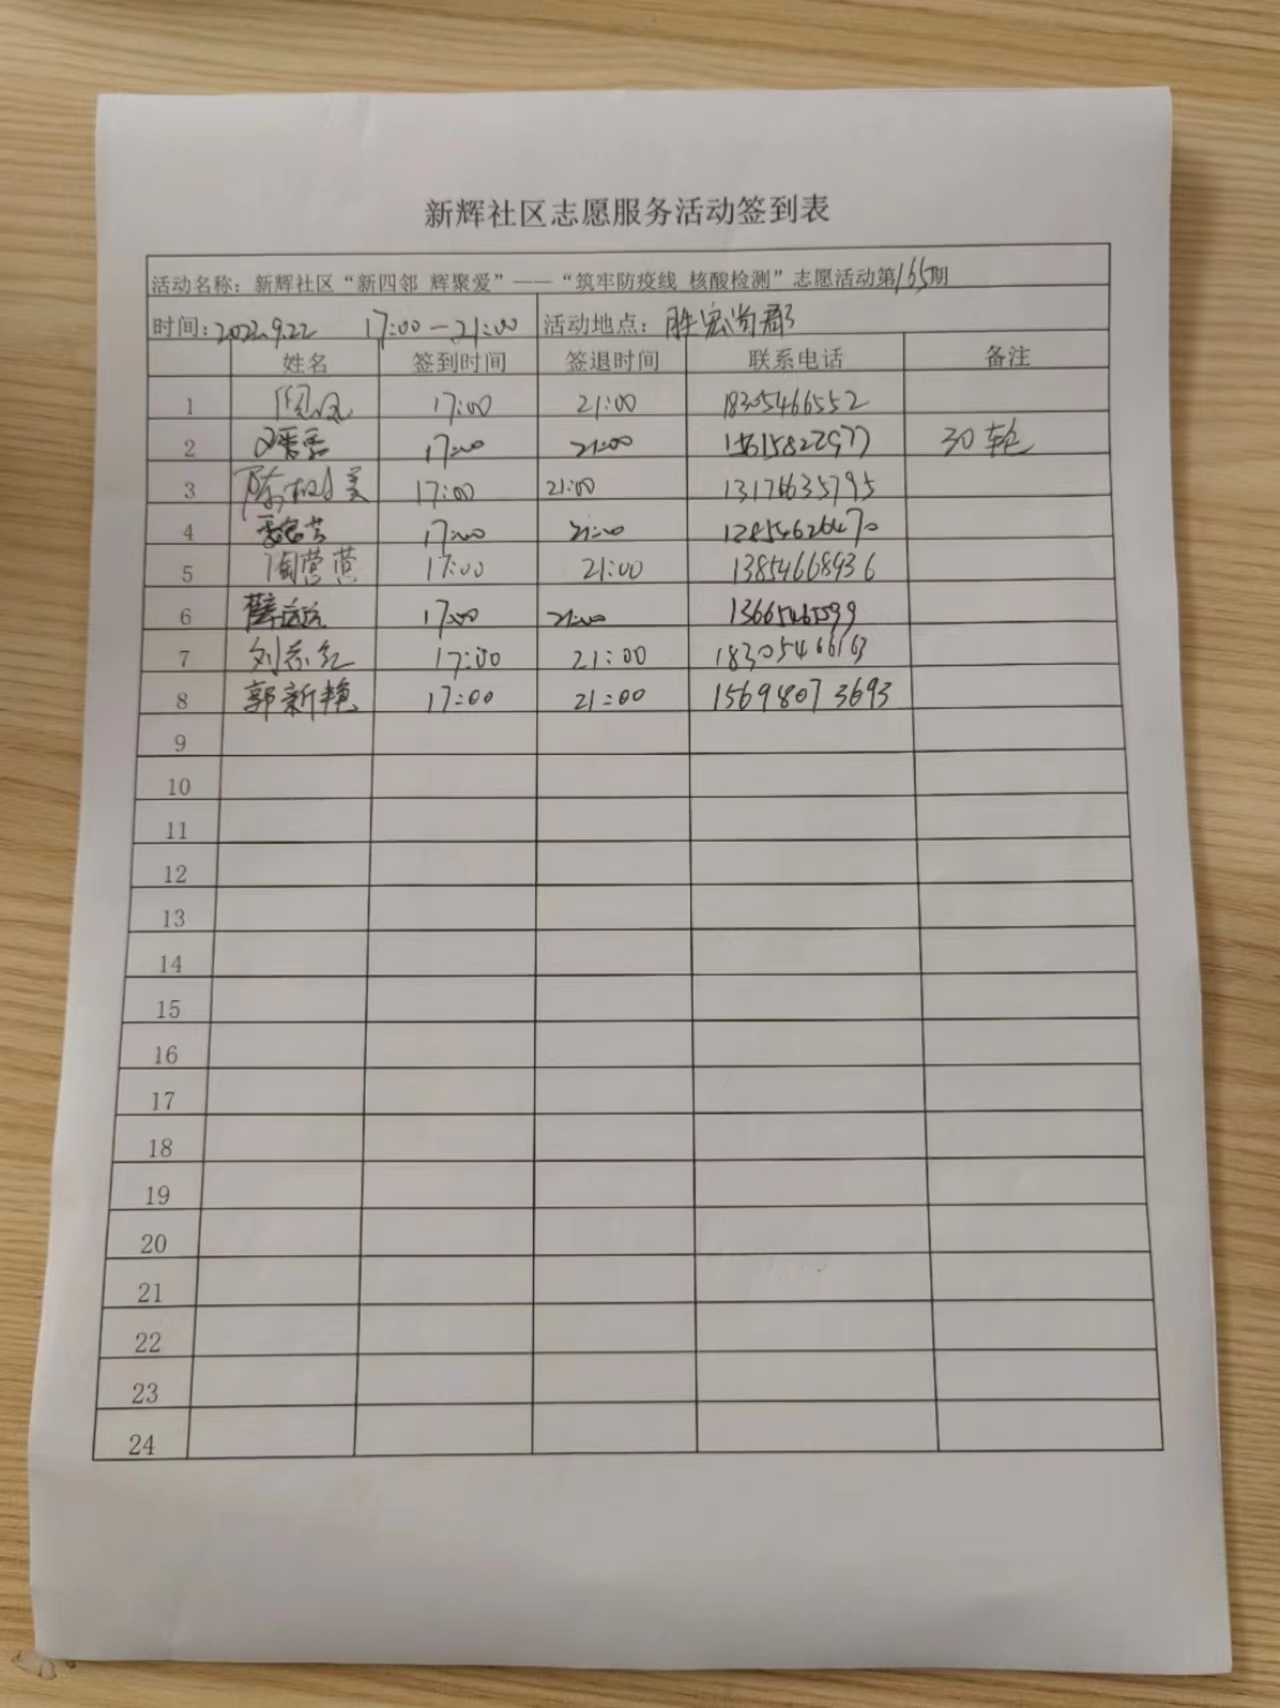 新辉社区志愿服务活动签到表
活动名称：新辉社区“新四邻 辉聚爱”——“筑牢防疫线 核酸检测”志愿活动第165期
时间：2022.9.22 17:00—21:00 活动地点：胜宏尚郡
姓名 签到时间 签退时间 联系电话 备注
1 17:00 21:00 18305466552
2 17:00 21:00 15615822977 30轮
3 陈树美 17:00 21:00 13176635795
4 17:00 21:00
5 陶营营 17:00 21:00 13854668936
6 薛远远 17:00 21:00
7 刘苏红 17:00 21:00 18305466163
8 郭新艳 17:00 21:00 15698073693
9
10
11
12
13
14
15
16
17
18
19
20
21
22
23
24